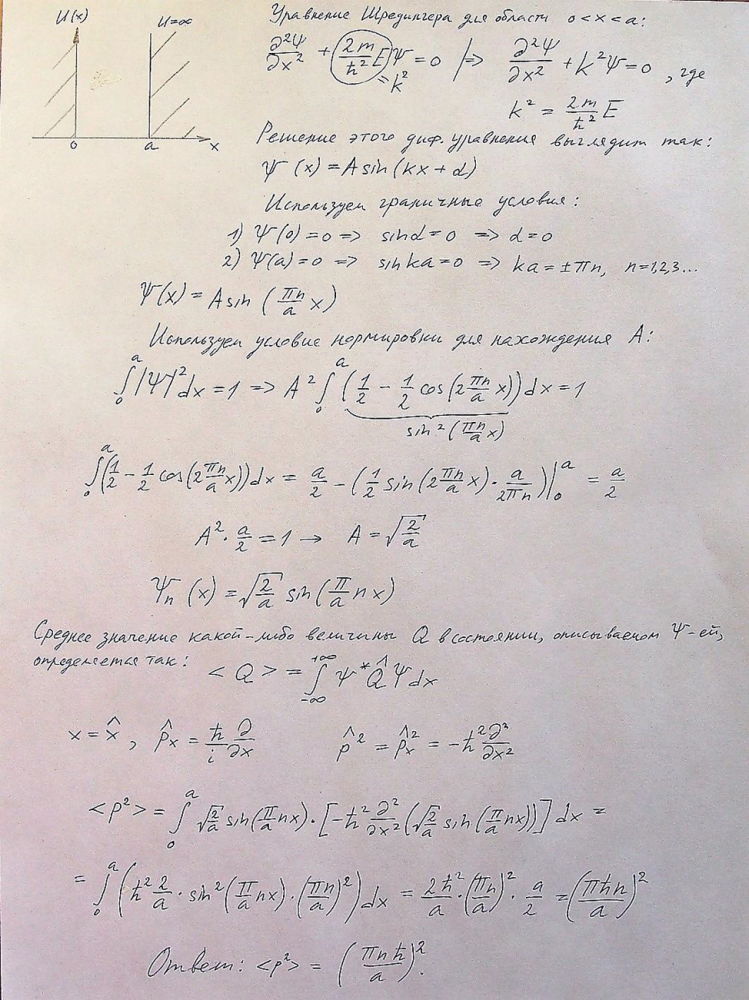 U(x) U=∞
0 a x
Уравнение Шредингера для области 0<x<a:
∂²Ψ/∂x² + (2m/ħ² E)Ψ = 0 |=> ∂²Ψ/∂x² + k²Ψ = 0, где
= k²
k² = 2m/ħ² E
Решение этого диф. уравнения выглядит так:
Ψ(x) = A sin(kx + α)
Используем граничные условия:
1) Ψ(0) = 0 => sin α = 0 => α = 0
2) Ψ(a) = 0 => sin ka = 0 => ka = ±πn, n=1,2,3...
Ψ(x) = A sin(πn/a x)
Используем условие нормировки для нахождения A:
∫₀ᵃ |Ψ|² dx = 1 => A² ∫₀ᵃ (1/2 − 1/2 cos(2 πn/a x)) dx = 1
sin²(πn/a x)
∫₀ᵃ (1/2 − 1/2 cos(2 πn/a x)) dx = a/2 − (1/2 sin(2 πn/a x) · a/2πn)|₀ᵃ = a/2
A² · a/2 = 1 → A = √(2/a)
Ψₙ(x) = √(2/a) sin(π/a nx)
Среднее значение какой-либо величины Q в состоянии, описываемом Ψ-ей,
определяется так: <Q> = ∫₋∞⁺∞ Ψ* Q̂ Ψ dx
x = x̂, p̂ₓ = ħ/i ∂/∂x p̂² = p̂ₓ² = −ħ² ∂²/∂x²
<p²> = ∫₀ᵃ √(2/a) sin(π/a nx) · [−ħ² ∂²/∂x² (√(2/a) sin(π/a nx))] dx =
= ∫₀ᵃ (ħ² 2/a · sin²(π/a nx) · (πn/a)²) dx = 2ħ²/a · (πn/a)² · a/2 = (πħn/a)²
Ответ: <p²> = (πnħ/a)².